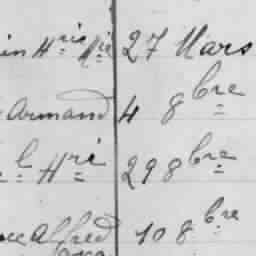 in Hri Mie 27 Mars
Armand 4 8bre
l Hri 29 8bre
Alfred 10 8bre